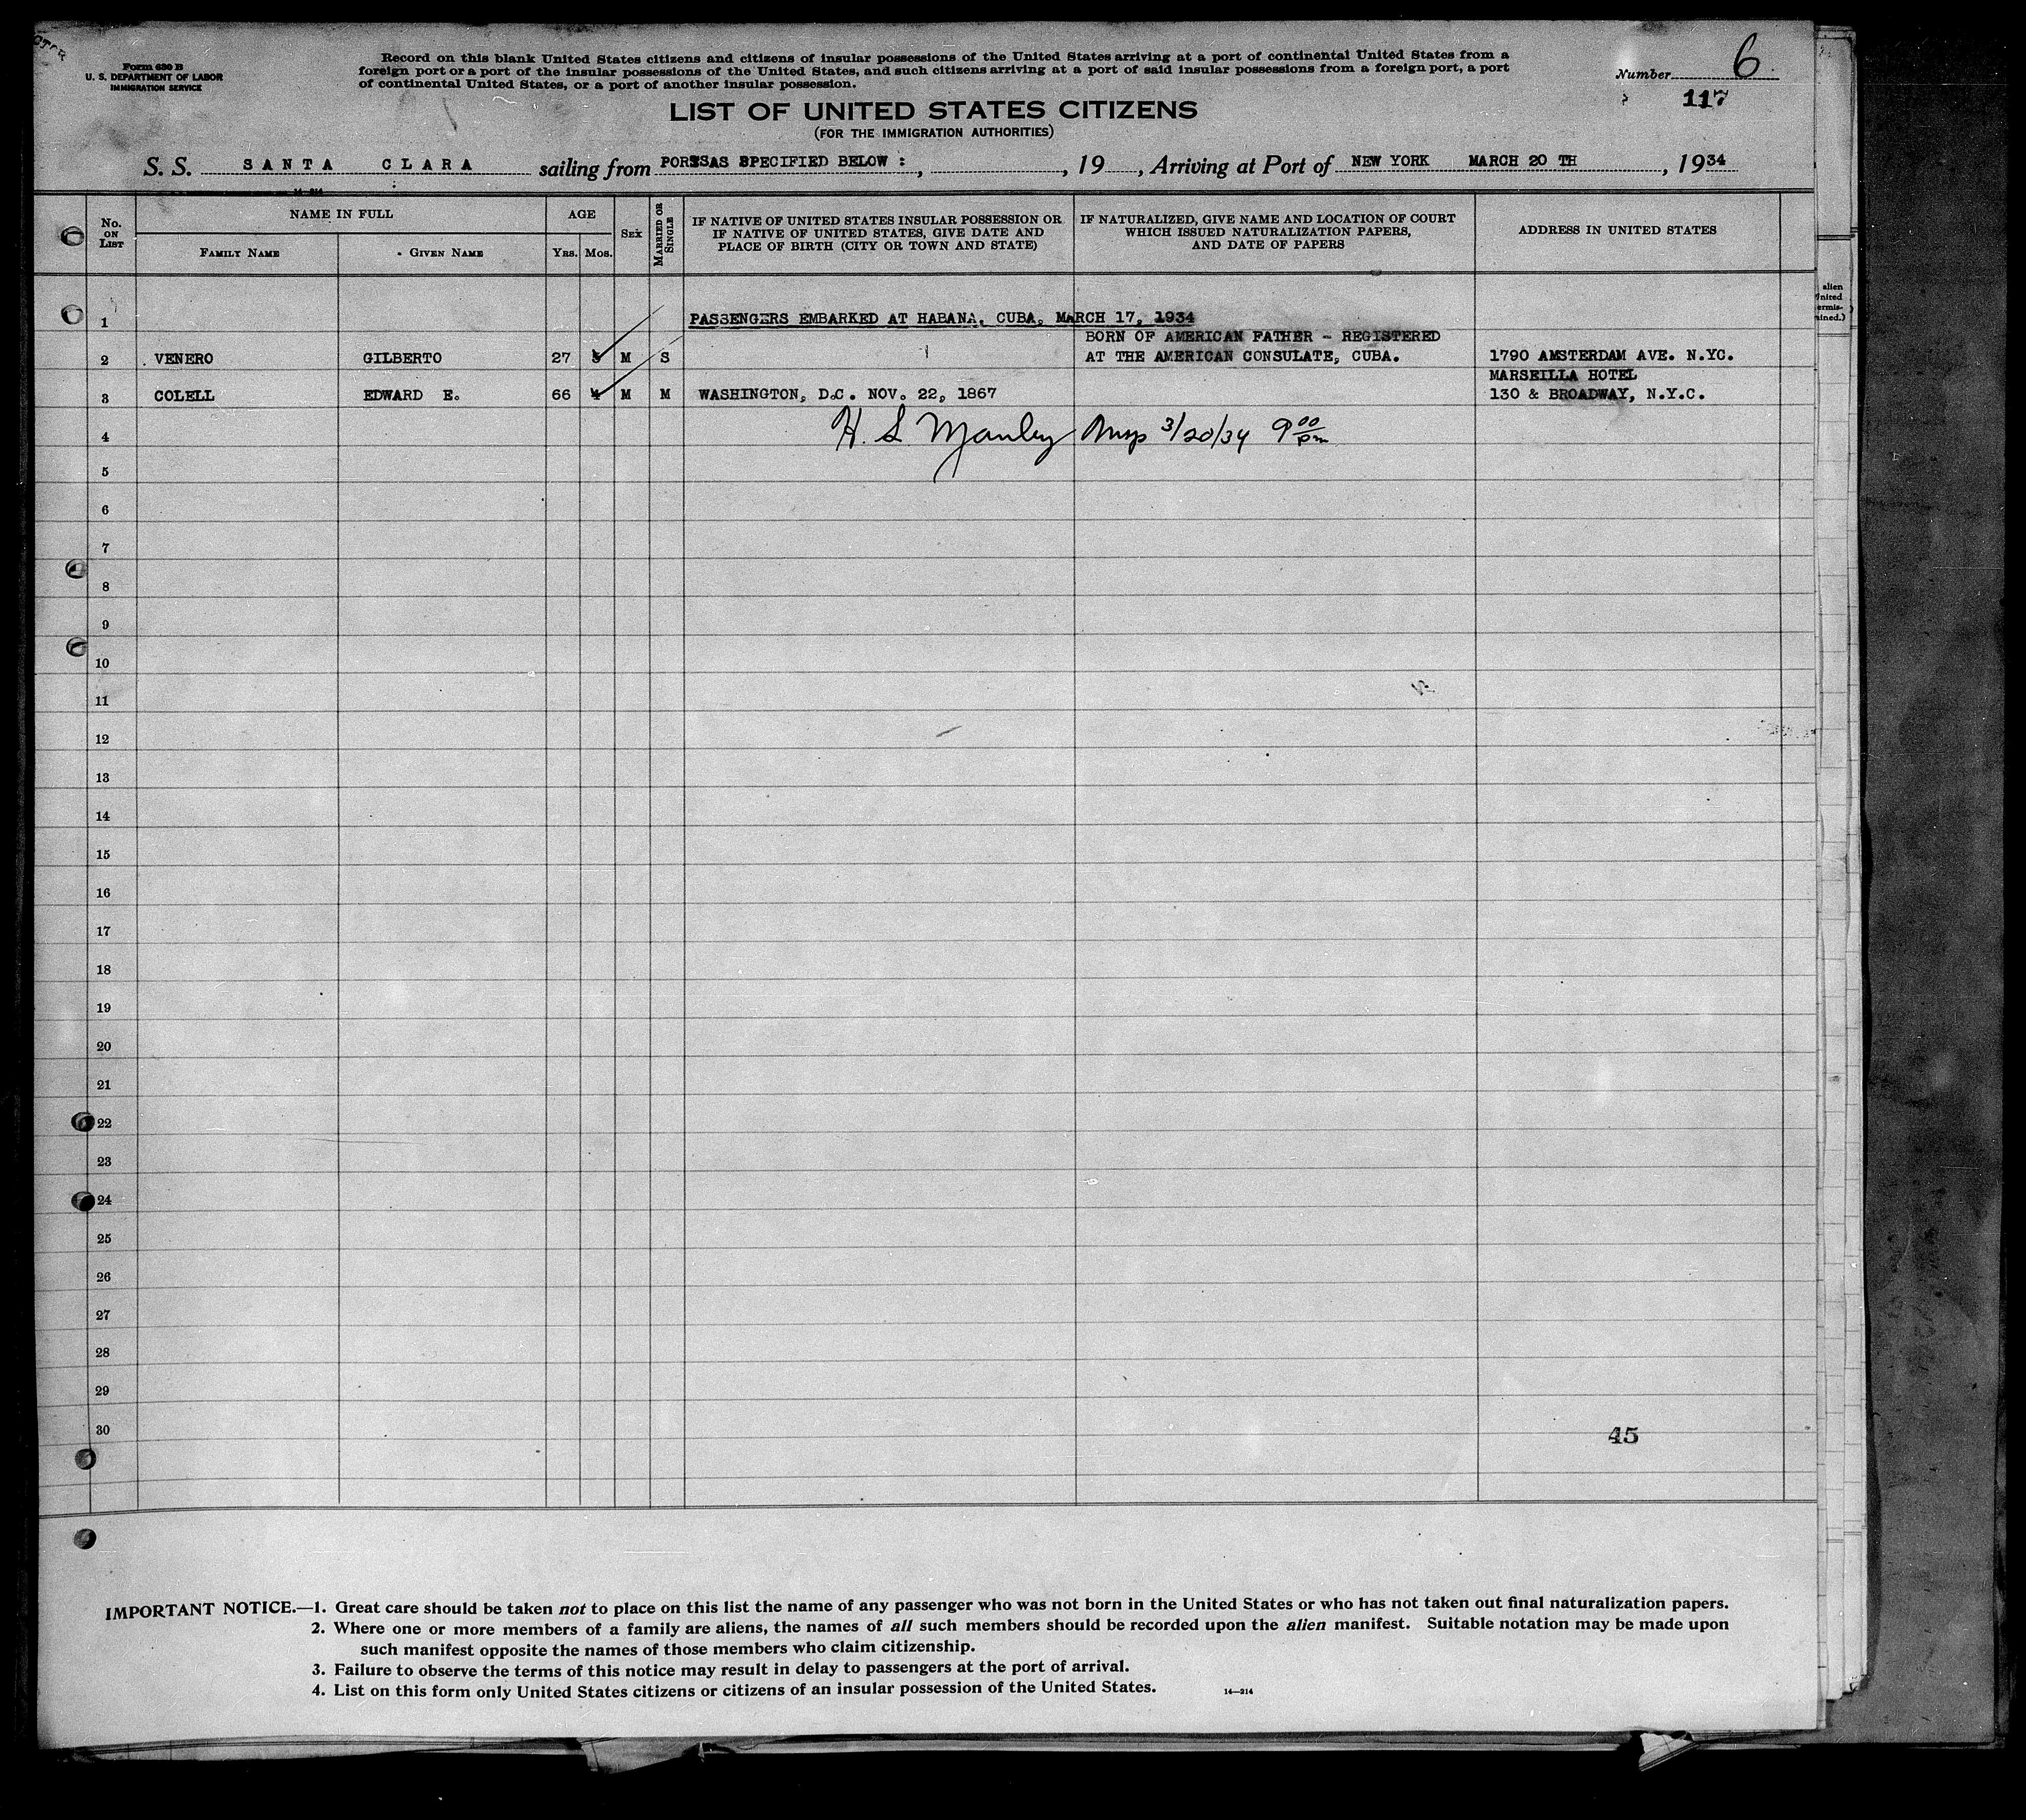 Form 630 B
U. S. DEPARTMENT OF LABOR
IMMIGRATION SERVICE
Record on this blank United States citizens and citizens of insular possessions of the United States arriving at a port of continental United States from a
foreign port or a port of the insular possessions of the United States, and such citizens arriving at a port of said insular possessions from a foreign port, a port
of continental United States, or a port of another insular possession.
Number 6
117
LIST OF UNITED STATES CITIZENS
(FOR THE IMMIGRATION AUTHORITIES)
S. S. SANTA CLARA sailing from PORTSAS SPECIFIED BELOW : , , 19 , Arriving at Port of NEW YORK MARCH 20 TH , 1934
14-214
No. ON LIST
NAME IN FULL
FAMILY NAME
GIVEN NAME
AGE
YRS. MOS.
SEX
MARRIED OR SINGLE
IF NATIVE OF UNITED STATES INSULAR POSSESSION OR
IF NATIVE OF UNITED STATES, GIVE DATE AND
PLACE OF BIRTH (CITY OR TOWN AND STATE)
IF NATURALIZED, GIVE NAME AND LOCATION OF COURT
WHICH ISSUED NATURALIZATION PAPERS,
AND DATE OF PAPERS
ADDRESS IN UNITED STATES
1 PASSENGERS EMBARKED AT HABANA, CUBA, MARCH 17, 1934
BORN OF AMERICAN FATHER - REGISTERED
2 VENERO GILBERTO 27 M S AT THE AMERICAN CONSULATE, CUBA. 1790 AMSTERDAM AVE. N.YC.
MARSEILLA HOTEL
3 COLELL EDWARD E. 66 4 M M WASHINGTON, D.C. NOV. 22, 1867 130 & BROADWAY, N.Y.C.
4 H. S Manley Insp 3/20/34 9 00 pm
5
6
7
8
9
10
11
12
13
14
15
16
17
18
19
20
21
22
23
24
25
26
27
28
29
30 45
IMPORTANT NOTICE.—1. Great care should be taken not to place on this list the name of any passenger who was not born in the United States or who has not taken out final naturalization papers.
2. Where one or more members of a family are aliens, the names of all such members should be recorded upon the alien manifest. Suitable notation may be made upon
such manifest opposite the names of those members who claim citizenship.
3. Failure to observe the terms of this notice may result in delay to passengers at the port of arrival.
4. List on this form only United States citizens or citizens of an insular possession of the United States.
14—214